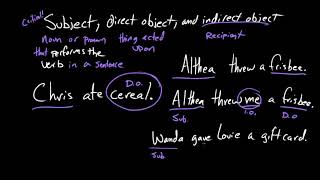 Critical!! Subject, direct object, and indirect object
Noun or pronoun thing acted Recipient
that performs the upon
verb in a sentence
Althea threw a frisbee.
D.O.
Chris ate cereal.
Althea threw me a frisbee.
Sub. I.O. D.O
Wanda gave Louie a giftcard.
Sub.